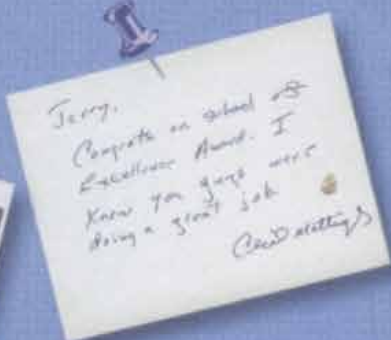 Jerry,
Congrats on school of
Excellence Award. I
Knew you guys were
doing a great job